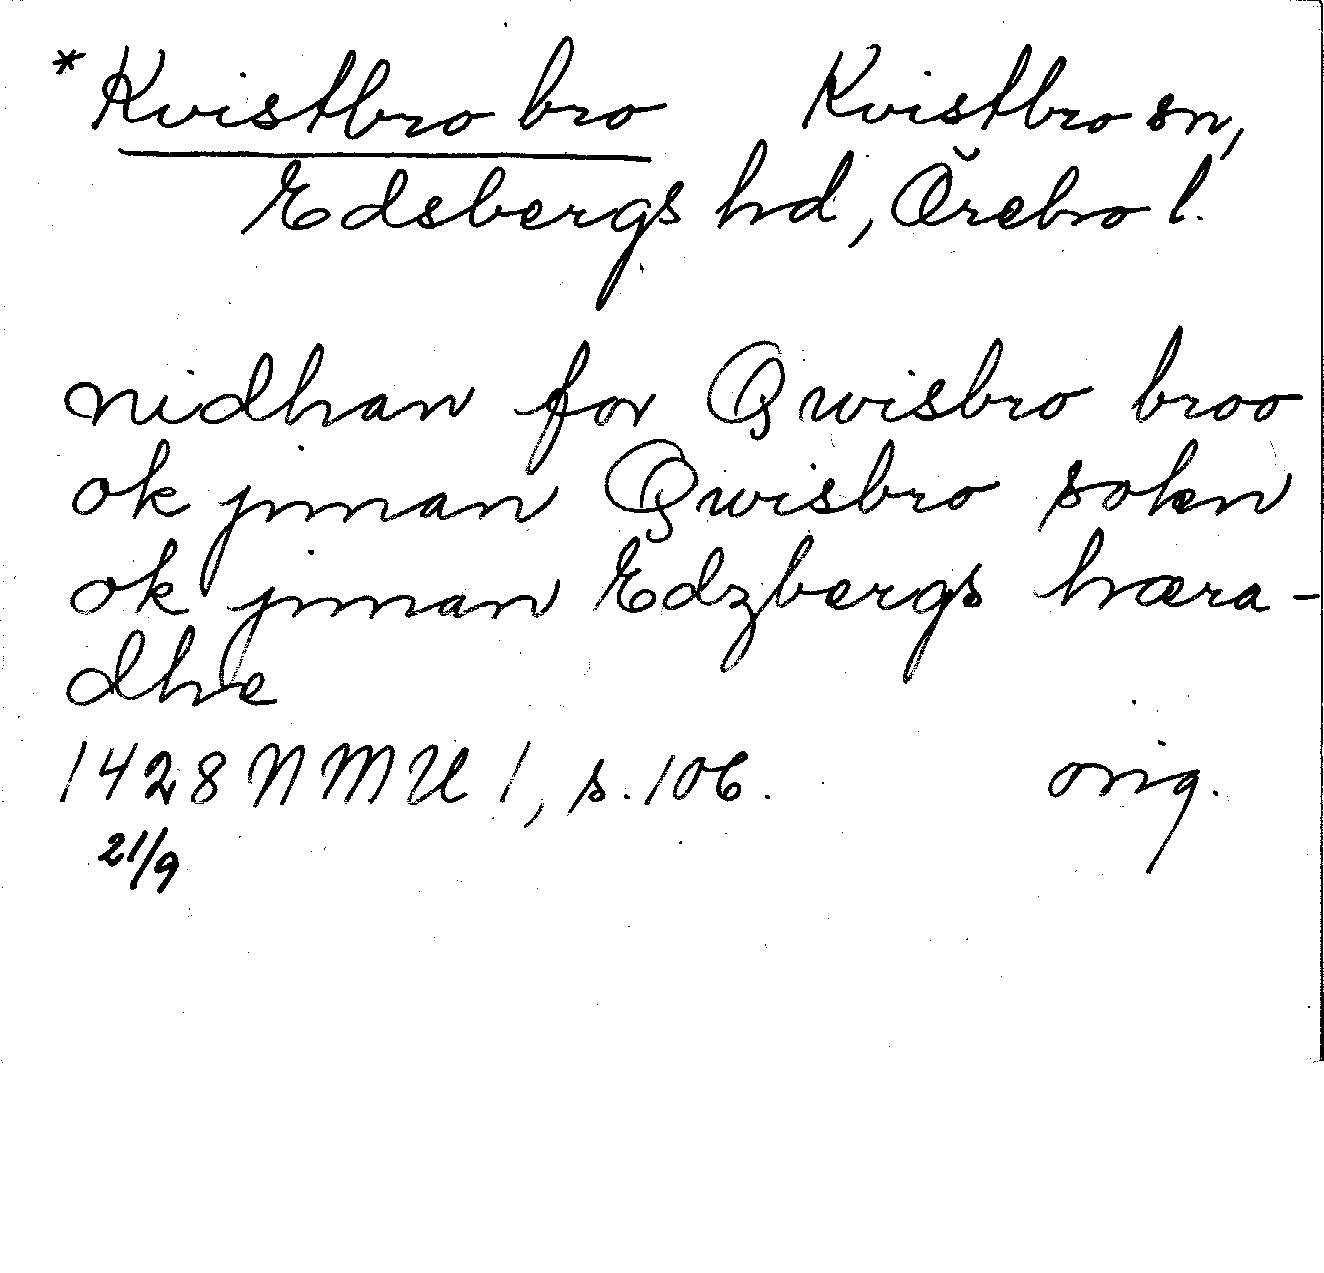 *Kvistbro bro Kvistbro sn,
Edsbergs hd, Örebro l.
nidhan for Qwisbro broo
ok jnnan Qwisbro sokn
ok jnnan Edzbergs hæra-
dhe
1428 NMU 1, s. 106. orig.
21/9